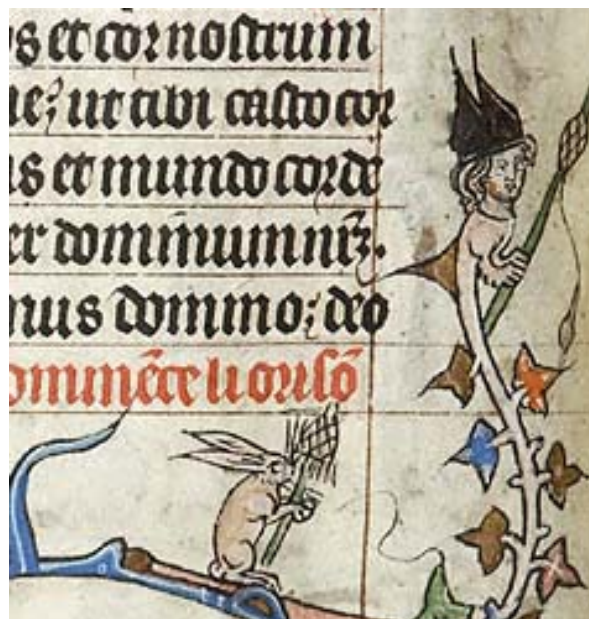 s et cor nostrum
ne; ut tibi casto cor
as et mundo corde
er dominum nr̄z.
mus domino; deo
omin̄e celi oriso᷑